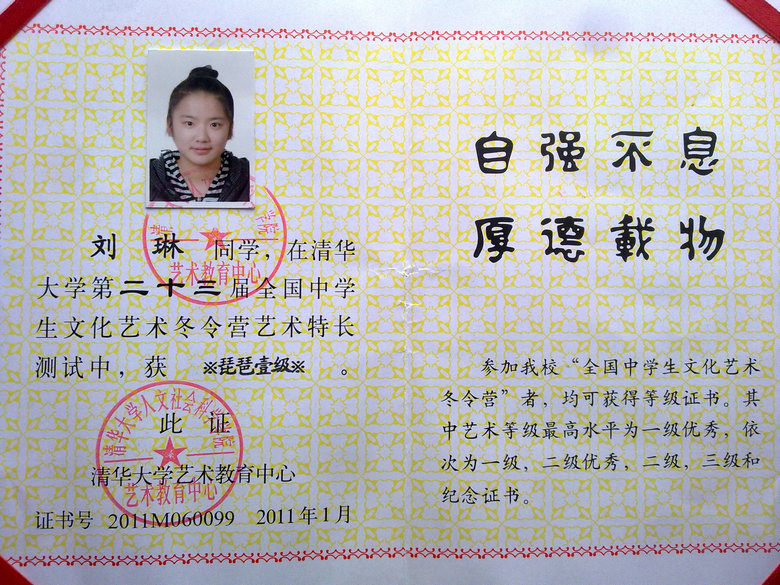 刘 琳 同学，在清华
大学第二十三届全国中学
生文化艺术冬令营艺术特长
测试中，获 ※琵琶壹级※ 。
此 证
清华大学艺术教育中心
证书号 2011M060099 2011年1月
艺术教育中心
清华大学人文社会科学学院
艺术教育中心
自强不息
厚德載物
参加我校“全国中学生文化艺术
冬令营”者，均可获得等级证书。其
中艺术等级最高水平为一级优秀，依
次为一级，二级优秀，二级，三级和
纪念证书。